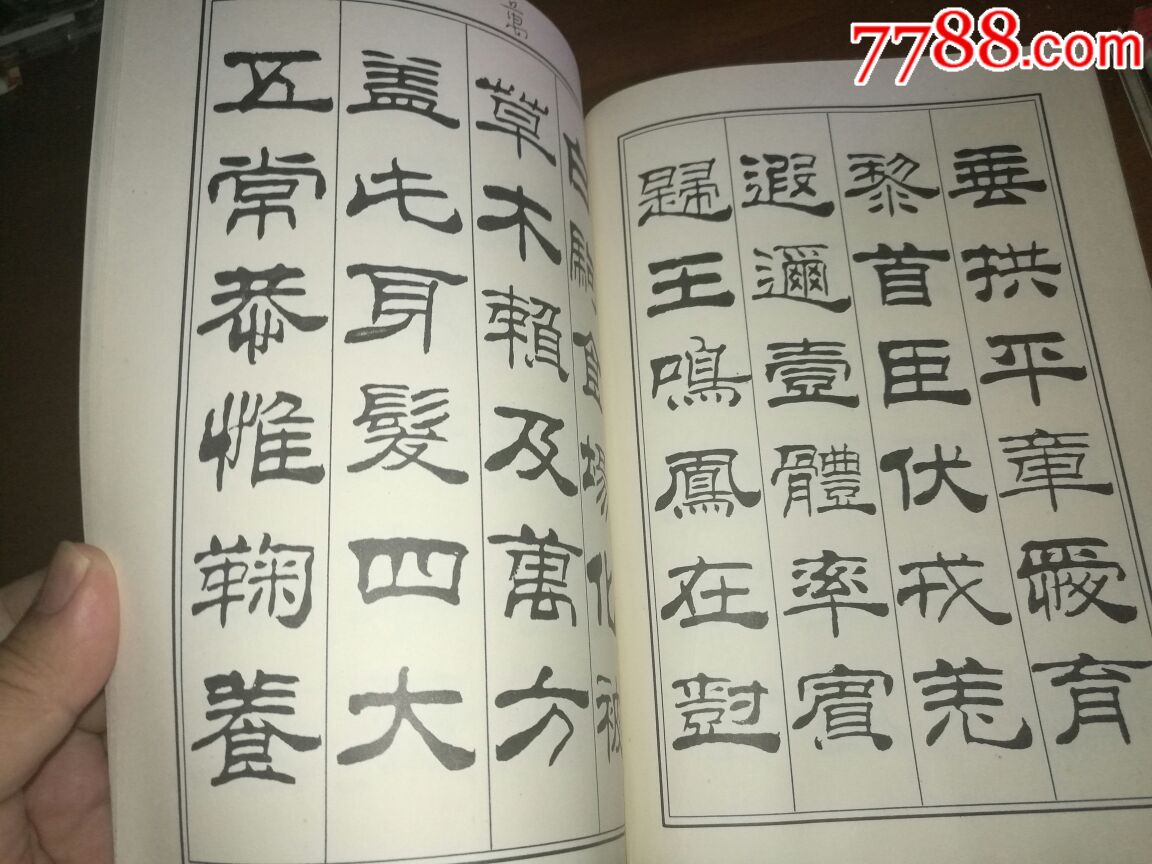 7788.com
垂拱平章愛育
黎首臣伏戎羌
遐邇壹體率賓
歸王鳴鳳在樹
白駒食場化被
草木賴及萬方
盖此身髮四大
五常恭惟鞠養